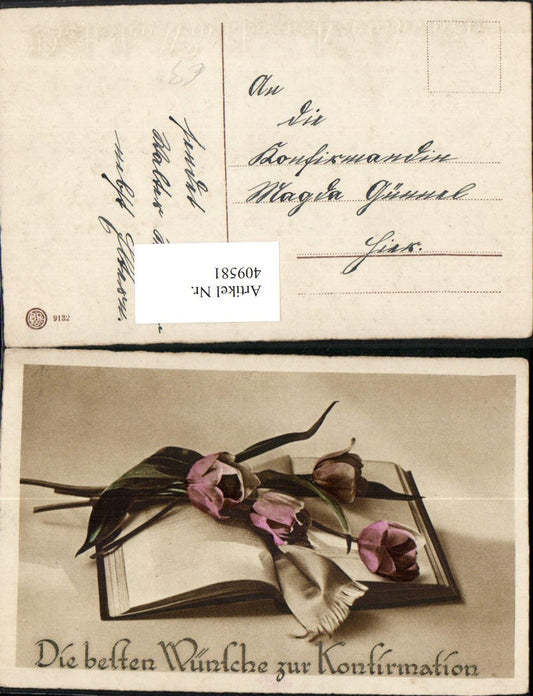 An
die
Konfirmandin
Magda Günnel
Hier.
sendet
Walter
nebst Eltern.
Artikel Nr.
409581
9132
Die besten Wünsche zur Konfirmation